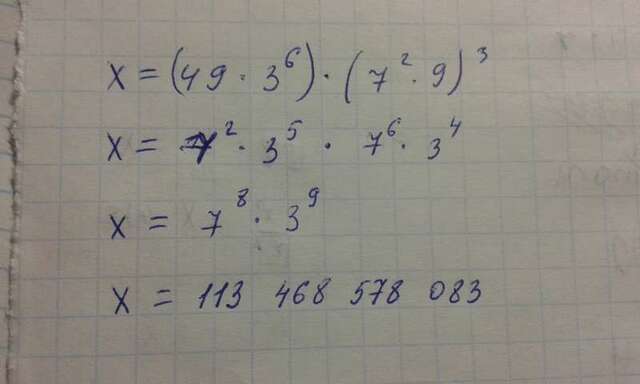 x = (49 · 3⁶) · (7² · 9)³
x = 7² · 3⁵ · 7⁶ · 3⁴
x = 7⁸ · 3⁹
x = 113 468 578 083